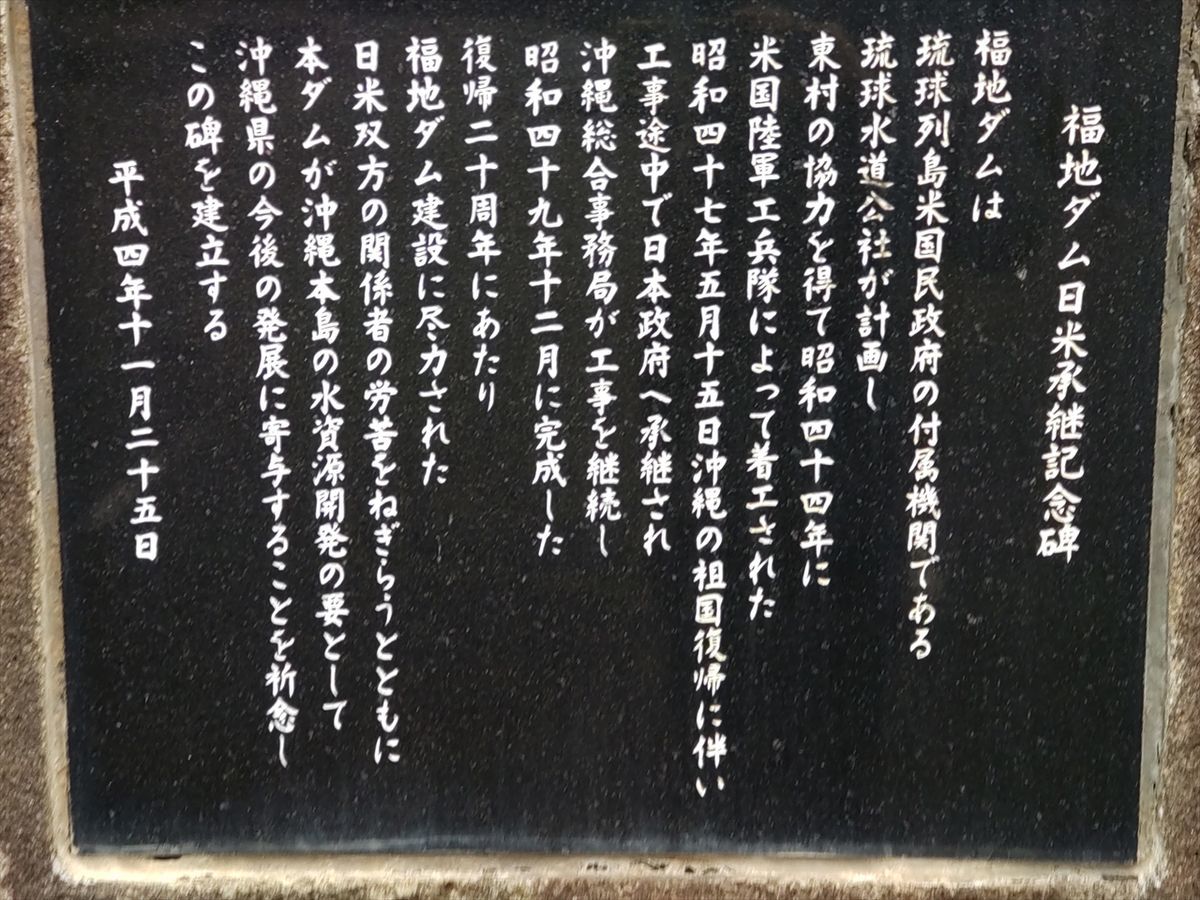 福地ダム日米承継記念碑
福地ダムは
琉球列島米国民政府の付属機関である
琉球水道公社が計画し
東村の協力を得て昭和四十四年に
米国陸軍工兵隊によって着工された
昭和四十七年五月十五日沖縄の祖国復帰に伴い
工事途中で日本政府へ承継され
沖縄総合事務局が工事を継続し
昭和四十九年十二月に完成した
復帰二十周年にあたり
福地ダム建設に尽力された
日米双方の関係者の労苦をねぎらうとともに
本ダムが沖縄本島の水資源開発の要として
沖縄県の今後の発展に寄与することを祈念し
この碑を建立する
平成四年十一月二十五日